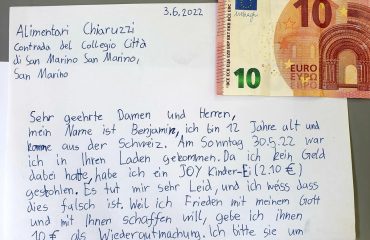 3.6.2022
Alimentari Chiaruzzi
Contrada del Collegio Città
di San Marino San Marino,
San Marino
10 EURO
ΕΥΡΩ
10
Sehr geehrte Damen und Herren,
mein Name ist Benjamin, ich bin 12 Jahre alt und
komme aus der Schweiz. Am Sonntag 30.5.22 war
ich in Ihren Laden gekommen. Da ich kein Geld
dabei hatte, habe ich ein JOY Kinder-Ei (2.10 €)
gestohlen. Es tut mir sehr Leid, und ich wëss dass
dies falsch ist. Weil ich Frieden mit meinem Gott
und mit Ihnen schaffen will, gebe ich ihnen
10 € als Wiedergutmachung. Ich bitte sie um